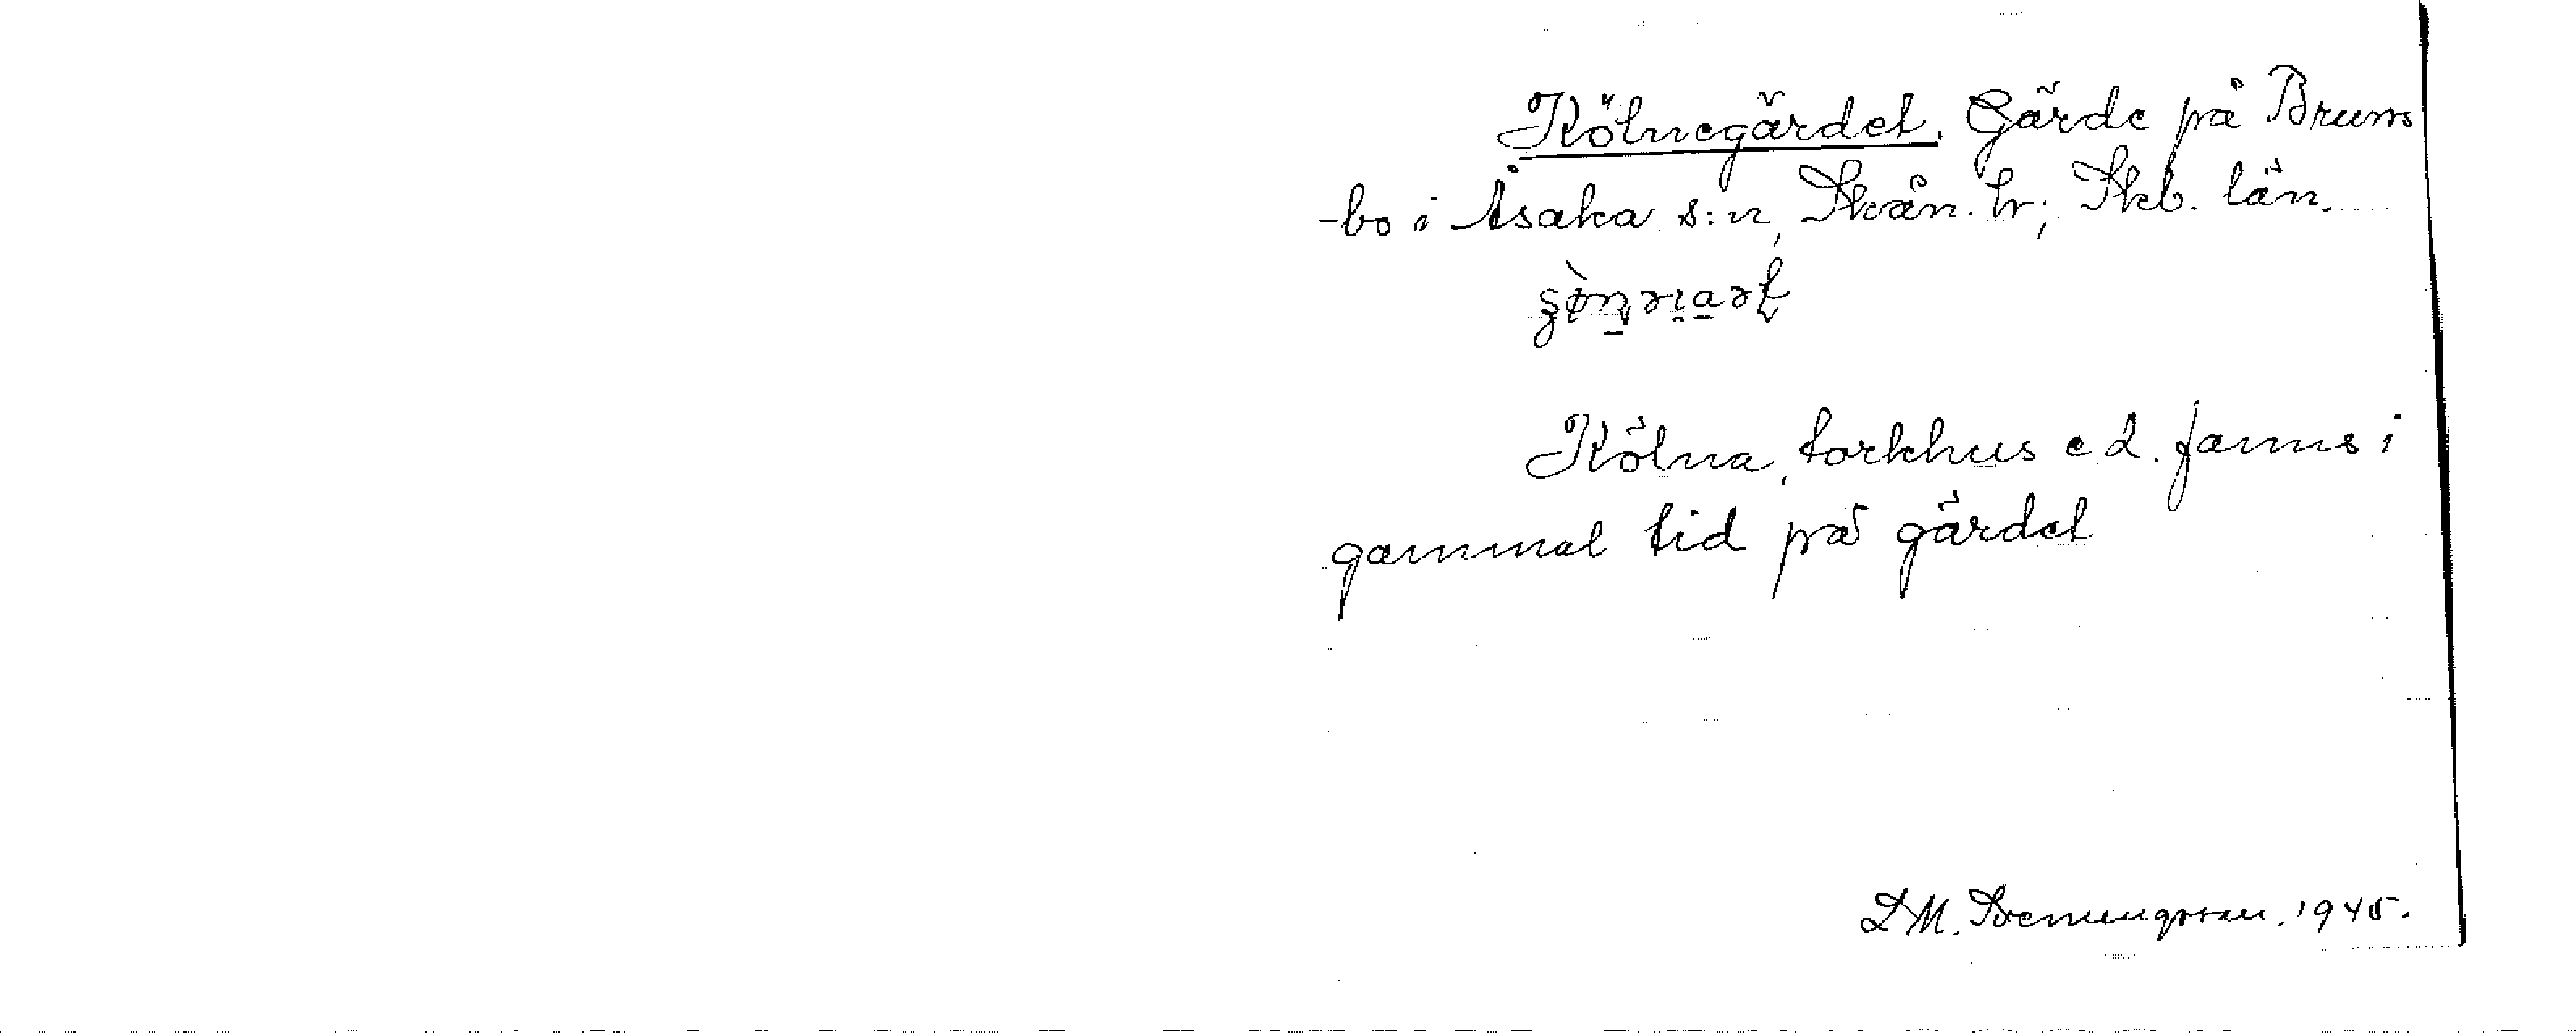 Kölnegärdet. Gärde på Bruns
-bo i Åsaka s:n, Skån. hr; Skb. län.
Kölna, torkhus e d. fanns i
gammal tid på gärdet
D M. 1945.